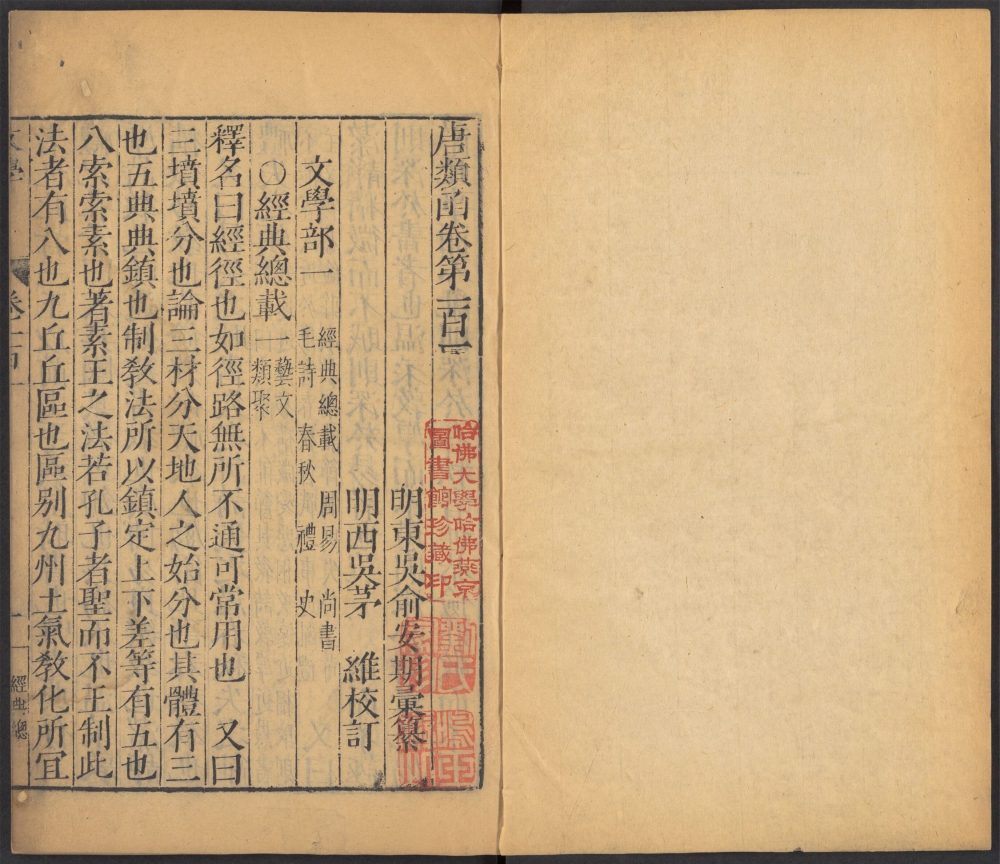 唐類函卷第一百二
明東吳俞安期彙纂
明西吳茅　維校訂
文學部一
經典總載　周易　尚書
毛詩　春秋　禮　史
○經典總載一
藝文
類聚
釋名曰經徑也如徑路無所不通可常用也　又曰
三墳墳分也論三材分天地人之始分也其體有三
也五典典鎮也制敎法所以鎮定上下差等有五也
八索索素也著素王之法若孔子者聖而不王制此
法者有八也九丘丘區也區别九州土氣敎化所宜
文學
經典總
哈佛大學哈佛燕京
圖書館珍藏印